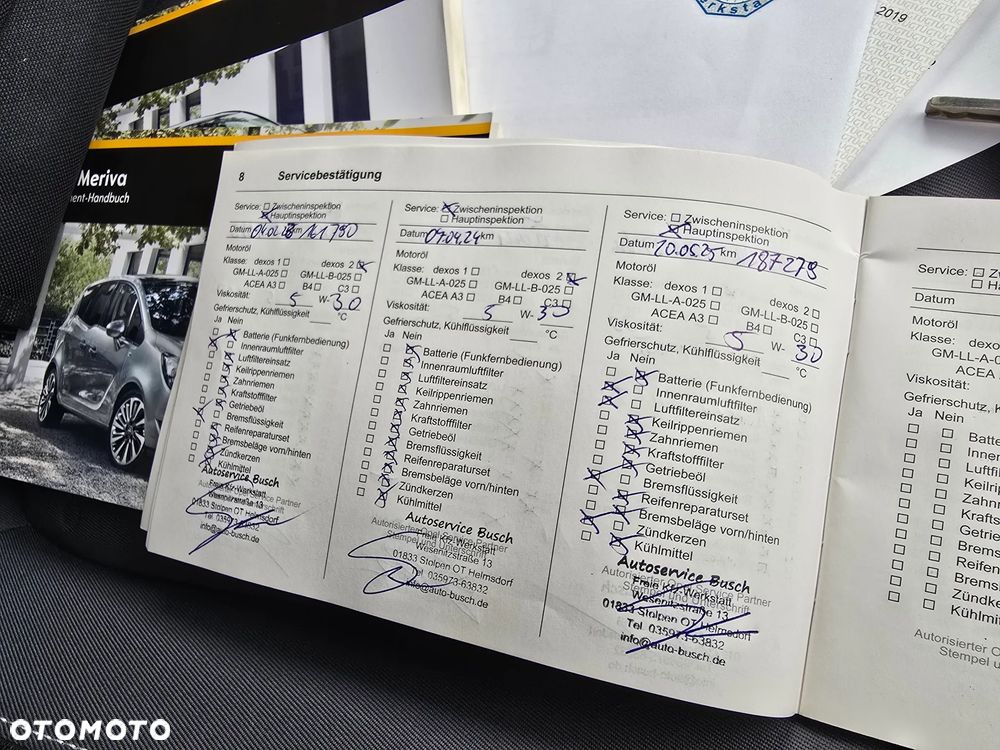 erksta
2019
Meriva
ent-Handbuch
8 Servicebestätigung
Service: Zwischeninspektion
Hauptinspektion
Datum 04.02.23 km 161 790
Motoröl
Klasse: dexos 1 dexos 2
GM-LL-A-025 GM-LL-B-025
ACEA A3 B4 C3
Viskosität: 5 W- 30
Gefrierschutz, Kühlflüssigkeit °C
Ja Nein
Batterie (Funkfernbedienung)
Innenraumluftfilter
Luftfiltereinsatz
Keilrippenriemen
Zahnriemen
Kraftstofffilter
Getriebeöl
Bremsflüssigkeit
Reifenreparaturset
Bremsbeläge vorn/hinten
Zündkerzen
Kühlmittel
Autoservice Busch
Freie Kfz-Werkstatt
Wesenitzstraße 13
01833 Stolpen OT Helmsdorf
Tel. 035973-63832
info@auto-busch.de
Service: Zwischeninspektion
Hauptinspektion
Datum 09.04.24 km
Motoröl
Klasse: dexos 1 dexos 2
GM-LL-A-025 GM-LL-B-025
ACEA A3 B4 C3
Viskosität: 5 W- 30
Gefrierschutz, Kühlflüssigkeit °C
Ja Nein
Batterie (Funkfernbedienung)
Innenraumluftfilter
Luftfiltereinsatz
Keilrippenriemen
Zahnriemen
Kraftstofffilter
Getriebeöl
Bremsflüssigkeit
Reifenreparaturset
Bremsbeläge vorn/hinten
Zündkerzen
Kühlmittel
Autoservice Busch
Autorisierter Opel Service Partner
Freie Kfz-Werkstatt
Stempel und Unterschrift
Wesenitzstraße 13
01833 Stolpen OT Helmsdorf
Tel. 035973-63832
info@auto-busch.de
Service: Zwischeninspektion
Hauptinspektion
Datum 20.05.25 km 187279
Motoröl
Klasse: dexos 1 dexos 2
GM-LL-A-025 GM-LL-B-025
ACEA A3 B4 C3
Viskosität: 5 W- 30
Gefrierschutz, Kühlflüssigkeit °C
Ja Nein
Batterie (Funkfernbedienung)
Innenraumluftfilter
Luftfiltereinsatz
Keilrippenriemen
Zahnriemen
Kraftstofffilter
Getriebeöl
Bremsflüssigkeit
Reifenreparaturset
Bremsbeläge vorn/hinten
Zündkerzen
Kühlmittel
Autoservice Busch
Autorisierter Opel Service Partner
Freie Kfz-Werkstatt
Stempel und Unterschrift
Wesenitzstraße 13
01833 Stolpen OT Helmsdorf
Tel. 035973-63832
info@auto-busch.de
Service: Z
Ha
Datum
Motoröl
Klasse: de
GM-LL-A
ACEA
Viskosität:
Gefrierschutz, K
Ja Nein
Batte
Innen
Luftfi
Keilri
Zahn
Krafts
Getrie
Brems
Reifen
Brems
Zündk
Kühlm
Autorisierter O
Stempel u
OTOMOTO